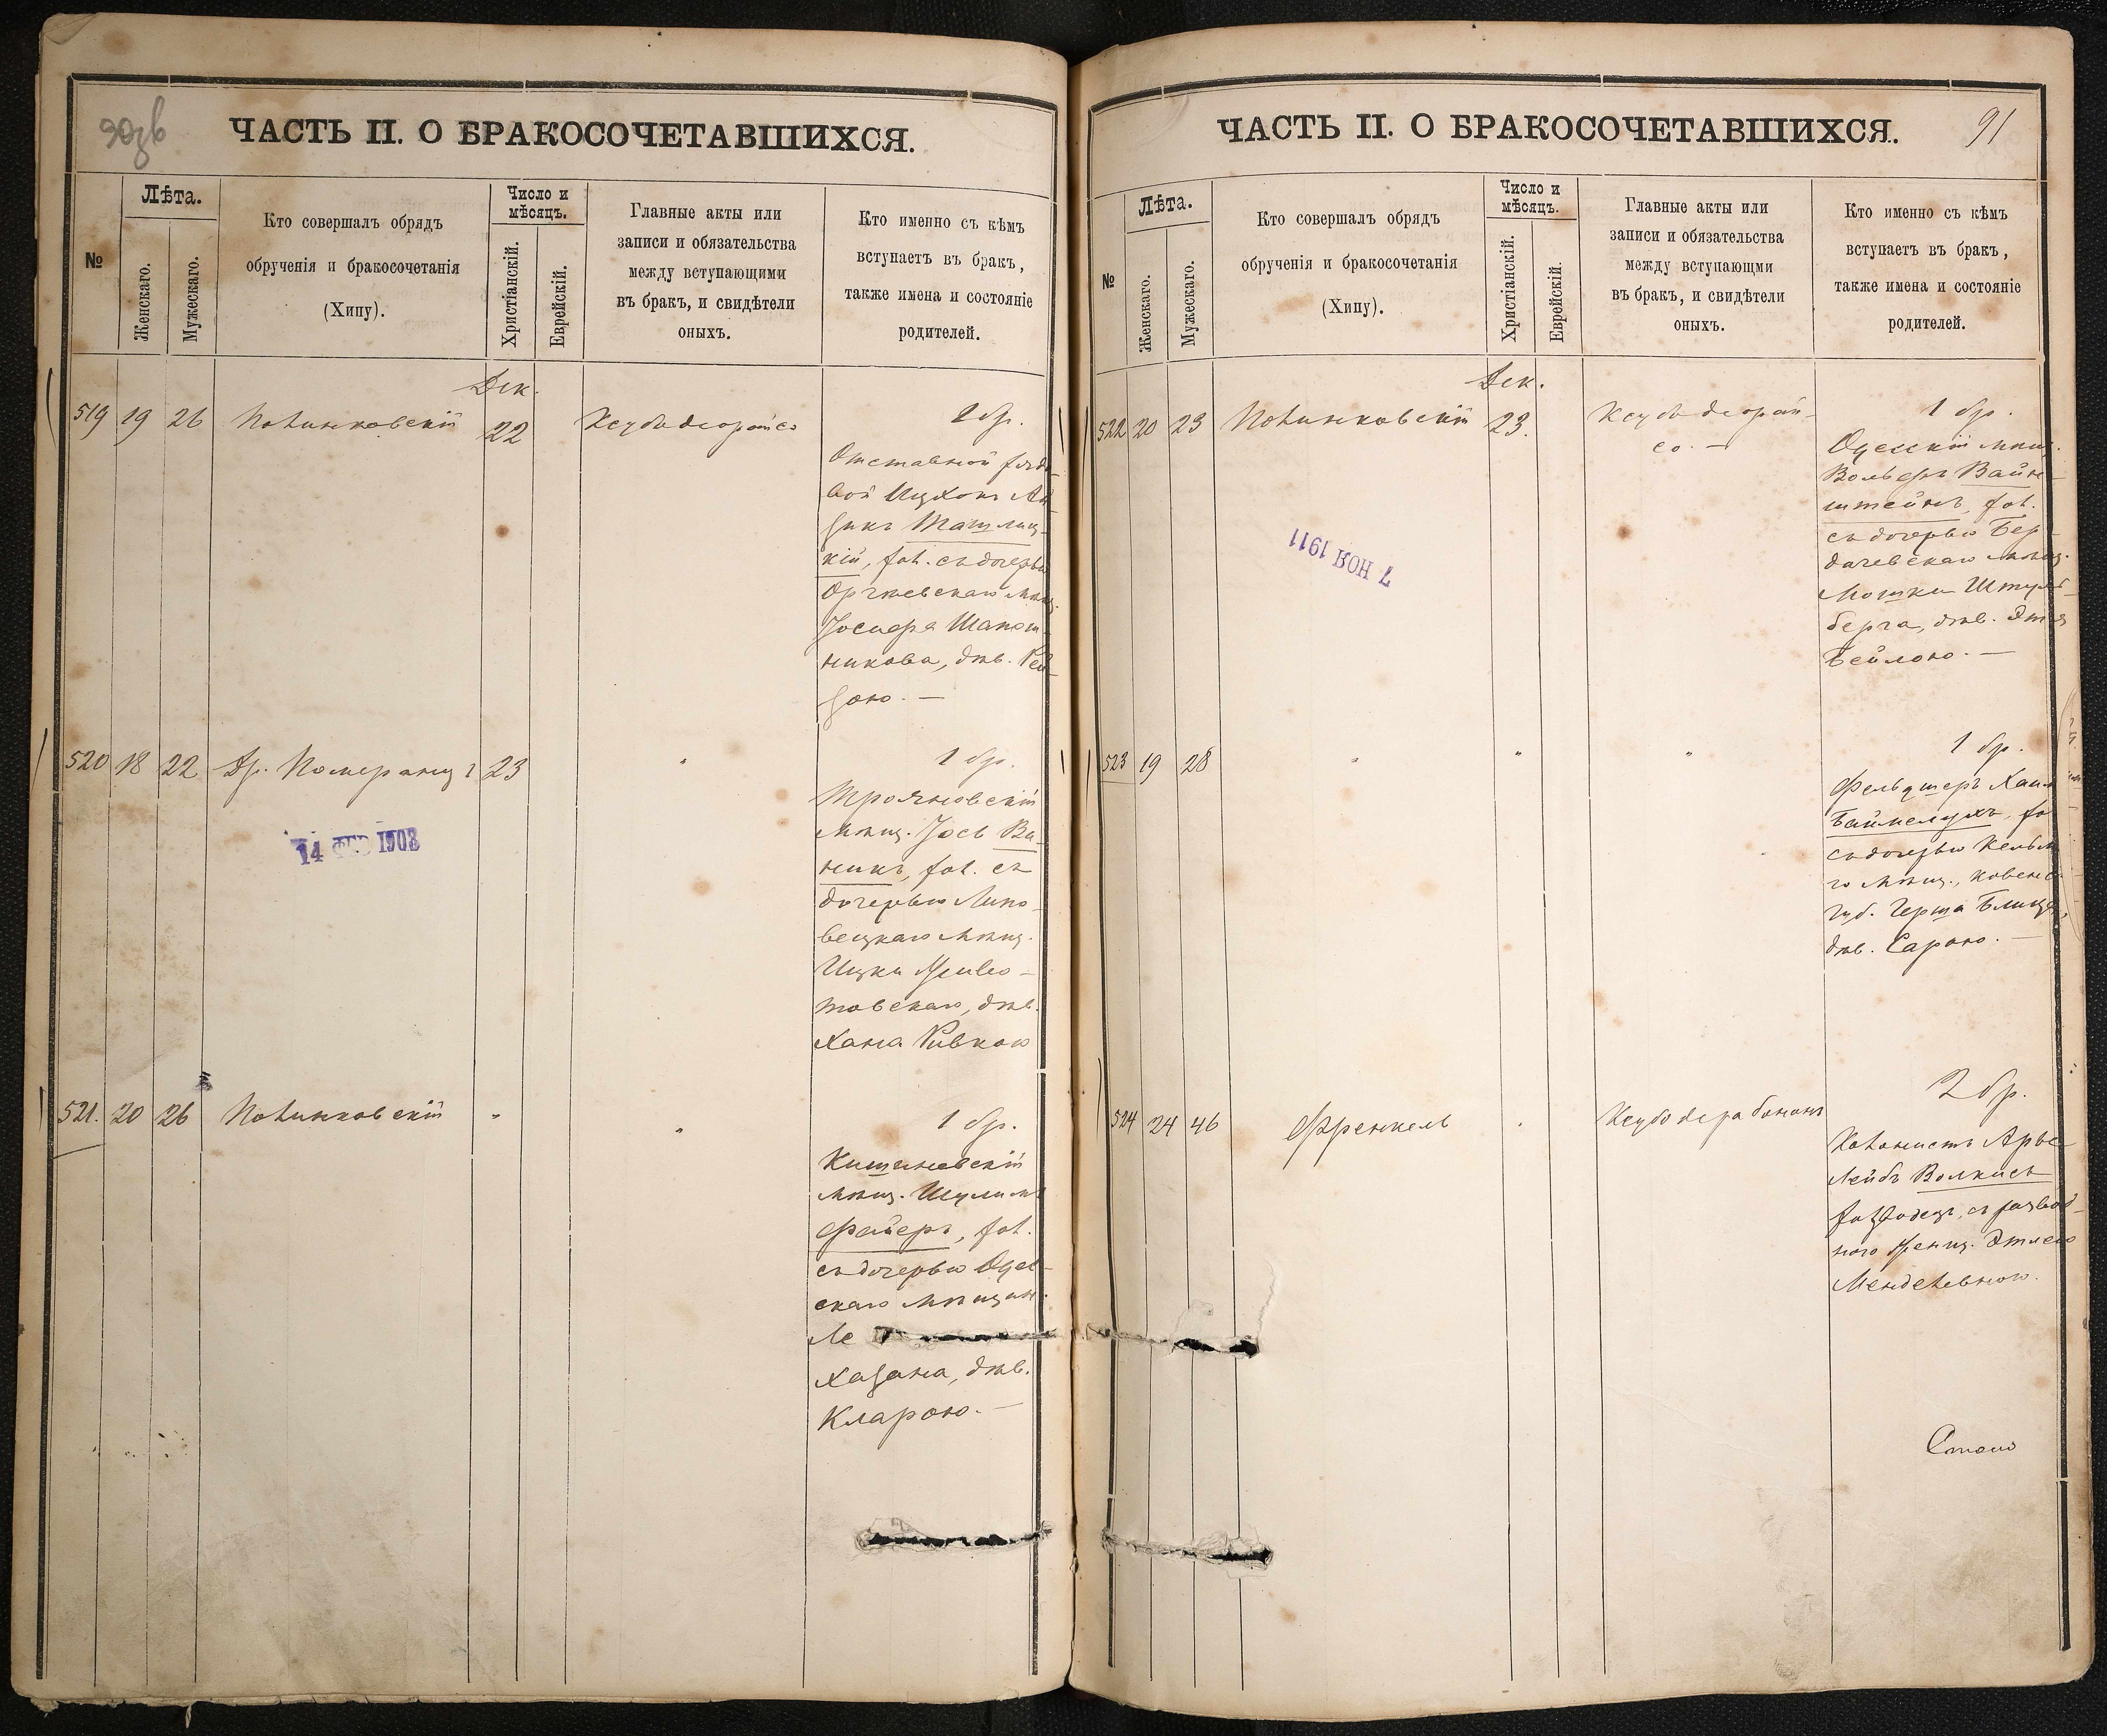 ЧАСТЬ II. О БРАКОСОЧЕТАВШИХСЯ.
№
Лѣта.
Женскаго.
Мужескаго.
Кто совершалъ обрядъ
обрученія и бракосочетанія
(Хипу).
Число и
мѣсяцъ.
Христіанскій.
Еврейскій.
Главные акты или
записи и обязательства
между вступающими
въ бракъ, и свидѣтели
оныхъ.
Кто именно съ кѣмъ
вступаетъ въ бракъ,
также имена и состояніе
родителей.
Дек.
519 19 26 Полинковскій 22
1 бр.
Отставной рядо-
вой Ицхокъ Ай-
зикъ Ташлиц-
кій, хол. съ дочерью
Оргѣевскаго мѣщ.
Іосифа Шапош-
никова, дѣв. Рей-
зою. —
520 18 22 Др. Померанцъ 23 "
1 бр.
Трояновскій
мѣщ. Іось Ва-
никъ, хол. съ
дочерью Липо-
вецкаго мѣщ.
Ицки
товскаго, дѣв.
Хана Ривкою
14 ФЕВ 1903
521. 20 26 Полинковскій " "
1 бр.
Кишиневскій
мѣщ. Шулимъ
Файеръ, хол.
съ дочерью Одес-
скаго мѣщан.
Ле
Хазана, дѣв.
Кларою. —
ЧАСТЬ II. О БРАКОСОЧЕТАВШИХСЯ.
91
№
Лѣта.
Женскаго.
Мужескаго.
Кто совершалъ обрядъ
обрученія и бракосочетанія
(Хипу).
Число и
мѣсяцъ.
Христіанскій.
Еврейскій.
Главные акты или
записи и обязательства
между вступающми
въ бракъ, и свидѣтели
оныхъ.
Кто именно съ кѣмъ
вступаетъ въ бракъ,
также имена и состояніе
родителей.
Дек.
522 20 23 Полинковскій 23.
1 бр.
Одесскій мѣщ.
Вольфъ Вайн-
штейнъ, хол.
съ дочерью Бер-
дичевскаго мѣщ.
Мошки Штуль-
берга, дѣв. Этя
Бейлою. —
7 НОЯ 1911
523 19 28 " " "
1 бр.
Фельдшеръ Хаим
Баймелухъ, хо
съ дочерью
го мѣщ., Ковенс
губ. Герша
дѣв. Сарою. —
524 24 46 Френкель
2 бр.
Колонистъ Арье
Лейбъ Волкисъ
съ развод-
Этлею
Менделевною.